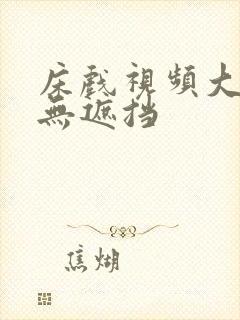 床戲視頻大
無遮挡
焦煳